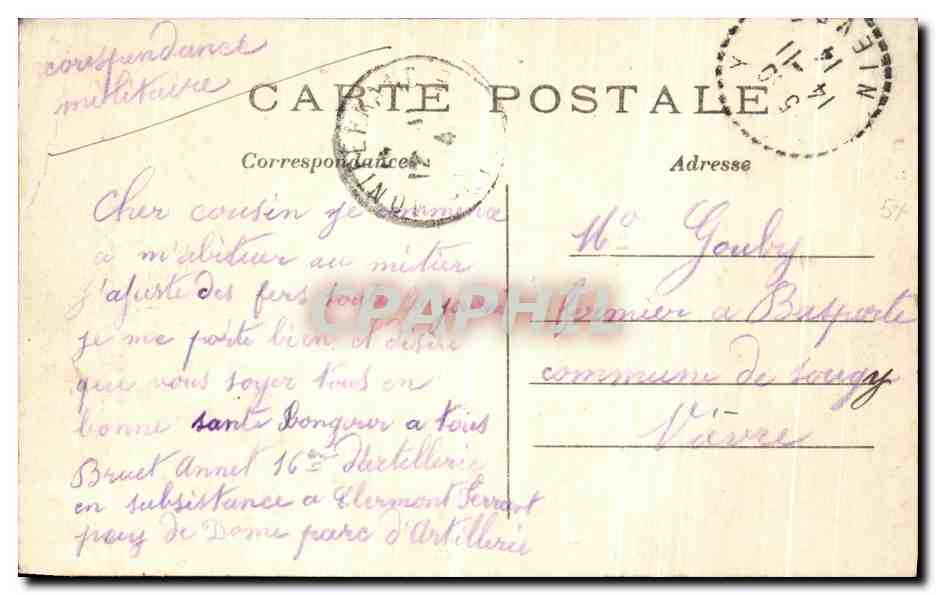 corespondance
militaire
CARTE POSTALE
Correspondance
Adresse
Cher cousin je commence
a m'abituer au métier
j'ajuste des fers tous
je me porte bien et désire
que vous soyer tous en
bonne santé Bongour a tous
Bruet Annet 16eme d'artillerie
en subsistance a Clermont Ferrant
puy de Dome parc d'Artillerie
Mr Gouby
fermier a Basporte
commune de Sougy
Nièvre
CPAPHIL